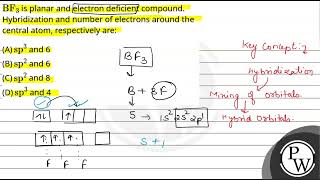 BF₃ is planar and electron deficient compound.
Hybridization and number of electrons around the
central atom, respectively are:
(A) sp³ and 6
(B) sp² and 6
(C) sp² and 8
(D) sp³ and 4
BF₃
B + 3F
5 → 1s² 2s² 2p¹
S + 1
F F F
Key Concept:-
Hybridization
Mixing of orbitals.
Hybrid Orbitals.
PW